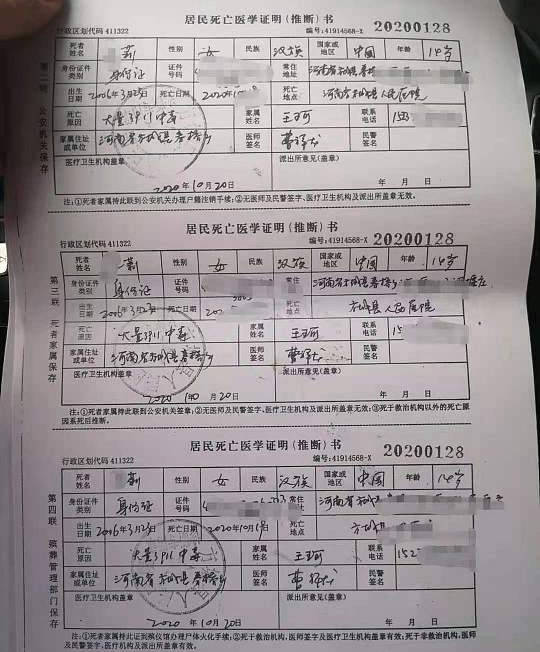 居民死亡医学证明(推断)书
行政区划代码 411322 编号:41914568-X 20200128
第二联 公安机关保存
死者姓名 莉 性别 女 民族 汉族 国家或地区 中国 年龄 14岁
身份证件类别 身份证 证件号码 常住地址 河南省方城县
出生日期 2006年3月2 死亡日期 2020年10 死亡地点 河南省方城县人民医院
死亡原因 大量3911中毒 家属姓名 王 联系电话 15
家属住址或单位 河南省方城县 医师签名 曹 民警签名
医疗卫生机构盖章 派出所意见(盖章)
2020年10月20日 年 月 日
注:①死者家属持此联到公安机关办理户籍注销手续;②无医师及民警签字、医疗卫生机构及派出所盖章无效。
居民死亡医学证明(推断)书
行政区划代码 411322 编号:41914568-X 20200128
第三联 死者家属保存
死者姓名 莉 性别 女 民族 汉族 国家或地区 中国 年龄 14岁
身份证件类别 身份证 证件号码 常住地址 河南省方城县
出生日期 2006年3月2 死亡日期 死亡地点 方城县人民医院
死亡原因 大量3911中毒 家属姓名 王 联系电话 15
家属住址或单位 河南省方城县 医师签名 曹 民警签名
医疗卫生机构盖章 派出所意见(盖章)
2020年10月20日 年 月 日
注:①死者家属持此联到公安机关签章;②无医师及民警签字、医疗卫生机构及派出所盖章无效;③死于救治机构以外的死亡原
因系死后推断。
居民死亡医学证明(推断)书
行政区划代码 411322 编号:41914568-X 20200128
第四联 殡葬管理部门保存
死者姓名 莉 性别 女 民族 汉族 国家或地区 中国 年龄 14岁
身份证件类别 身份证 证件号码 常住地址 河南省方城
出生日期 2006年3月2 死亡日期 2020年10月19日 死亡地点 方城县人民医院
死亡原因 大量3911中毒 家属姓名 王 联系电话 152
家属住址或单位 河南省方城县 医师签名 曹 民警签名
医疗卫生机构盖章 派出所意见(盖章)
2020年10月20日 年 月 日
注:①死者家属持此证到殡仪馆办理尸体火化手续;②死于救治机构,医师签字及医疗卫生机构盖章有效;死于非救治机构,医师及民警签字、医疗卫生机构及派出所盖章有效。